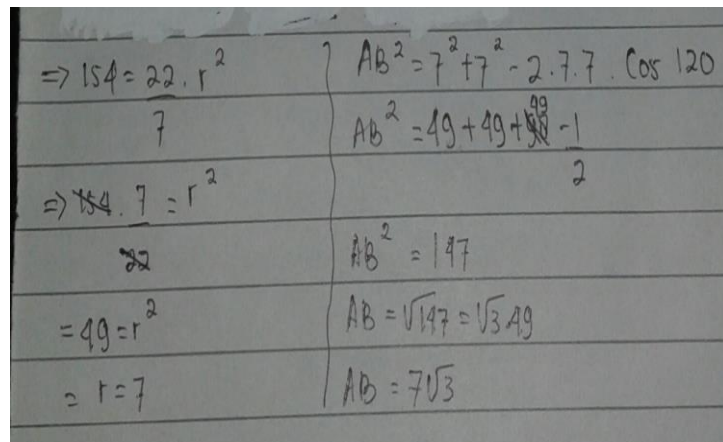 => 154 = 22 . r²
7
=> 154 . 7 = r²
22
= 49 = r²
= r = 7
AB² = 7² + 7² - 2 . 7 . 7 . Cos 120
AB² = 49 + 49 + 49 -1
2
AB² = 147
AB = √147 = √3.49
AB = 7√3